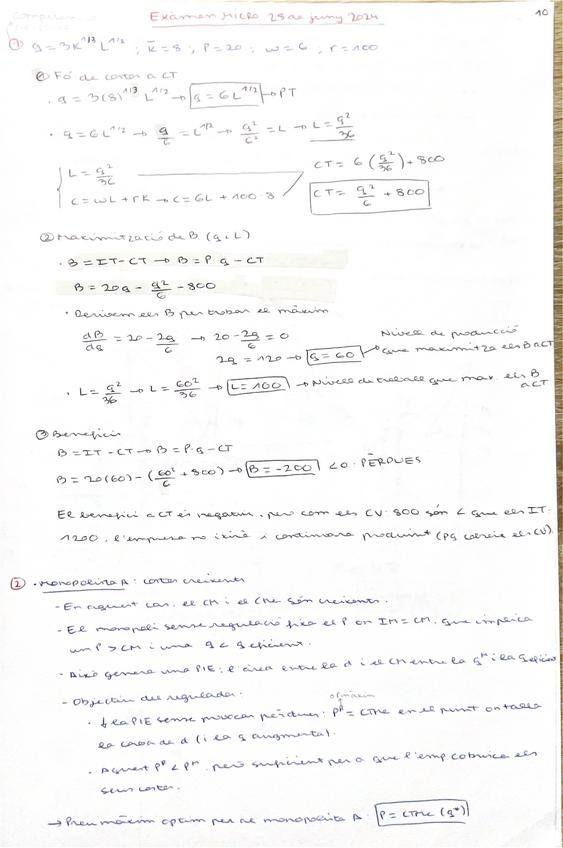 Exàmen MICRO 28 de juny 2024
10
① q = 3K^1/3 L^1/2 ; K̄ = 8 ; P = 20 ; w = 6 ; r = 100
① Fó de costos a CT
· q = 3(8)^1/3 L^1/2 → q = 6L^1/2 → PT
· q = 6L^1/2 → q/6 = L^1/2 → q²/6² = L → L = q²/36
L = q²/36
C = wL + rK → C = 6L + 100·8
CT = 6 (q²/36) + 800
CT = q²/6 + 800
② Maximització de B (q i L)
· B = IT - CT → B = P·q - CT
B = 20q - q²/6 - 800
· Derivem els B per trobar el màxim
dB/dq = 20 - 2q/6 → 20 - 2q/6 = 0
2q = 120 → q = 60 → Nivell de producció que maximitza els B a CT
· L = q²/36 → L = 60²/36 → L = 100 → Nivell de treball que max. els B a CT
③ Beneficis
B = IT - CT → B = P·q - CT
B = 20(60) - (60²/6 + 800) → B = -200 < 0 : PÈRDUES
El benefici a CT és negatiu, però com els CV: 800 són < que els IT:
1200, l'empresa no i continuarà produint (Pq els CV).
② · Monopolista A: costos creixents
- En aquest cas, el CM i el CMe són creixents.
- El monopoli sense regulació fixa el P on IM = CM, que implica
un P > CM i una q < q eficient.
- Això genera una PIE: l'àrea entre la d i el CM entre la q^M i la q eficient
- Objectiu del regulador:
· ↓ la PIE sense provocar pèrdues: P^R = CTMe en el punt on talla
la corba de d (i la q augmenta).
· Aquest P^R < P^M, però suficient per a que l'emp cobreixi els
seus costos.
→ Preu màxim òptim per al monopolista A: P = CTMe (q*)